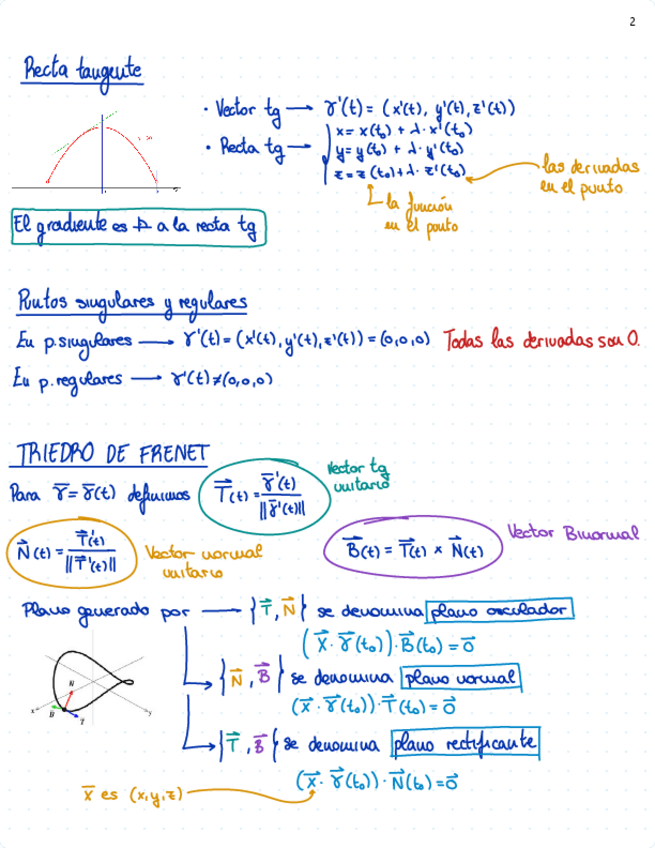 2
Recta tangente
· Vector tg → γ'(t) = (x'(t), y'(t), z'(t))
· Recta tg → x = x(t₀) + λ · x'(t₀)
y = y(t₀) + λ · y'(t₀)
z = z(t₀) + λ · z'(t₀)
las derivadas
en el punto
la función
en el punto
El gradiente es ⊥ a la recta tg
Puntos singulares y regulares
En p. singulares → γ'(t) = (x'(t), y'(t), z'(t)) = (0,0,0) Todas las derivadas son 0.
En p. regulares → γ'(t) ≠ (0,0,0)
TRIEDRO DE FRENET
Para γ̄ = γ̄(t) definimos T⃗(t) = γ̄'(t) / ||γ̄'(t)|| Vector tg unitario
N⃗(t) = T⃗'(t) / ||T⃗'(t)|| Vector normal unitario
B⃗(t) = T⃗(t) × N⃗(t) Vector Binormal
Plano generado por → {T⃗, N⃗} se denomina plano osculador
(x⃗ · γ⃗(t₀)) · B⃗(t₀) = 0⃗
{N⃗, B⃗} se denomina plano normal
(x⃗ · γ⃗(t₀)) · T⃗(t₀) = 0⃗
{T⃗, B⃗} se denomina plano rectificante
(x⃗ · γ⃗(t₀)) · N⃗(t₀) = 0⃗
x̄ es (x,y,z)
N
x B T y